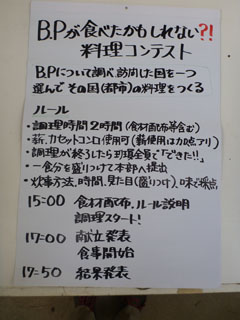 B.Pが食べたかもしれない?!
料理コンテスト
B.Pについて調べ訪問した国を一つ
選んで その国(都市)の料理をつくる
ルール
・調理時間2時間(食材配布等含む)
・薪、カセットコンロ使用可(薪使用は加点アリ)
・調理が終了したら班員全員で「できた!!」
・一食分を盛りつけて本部へ提出
・炊事方法、時間、見た目(盛りつけ)、味で採点
15:00 食材配布、ルール説明
調理スタート!
17:00 献立発表
食事開始
17:50 結果発表